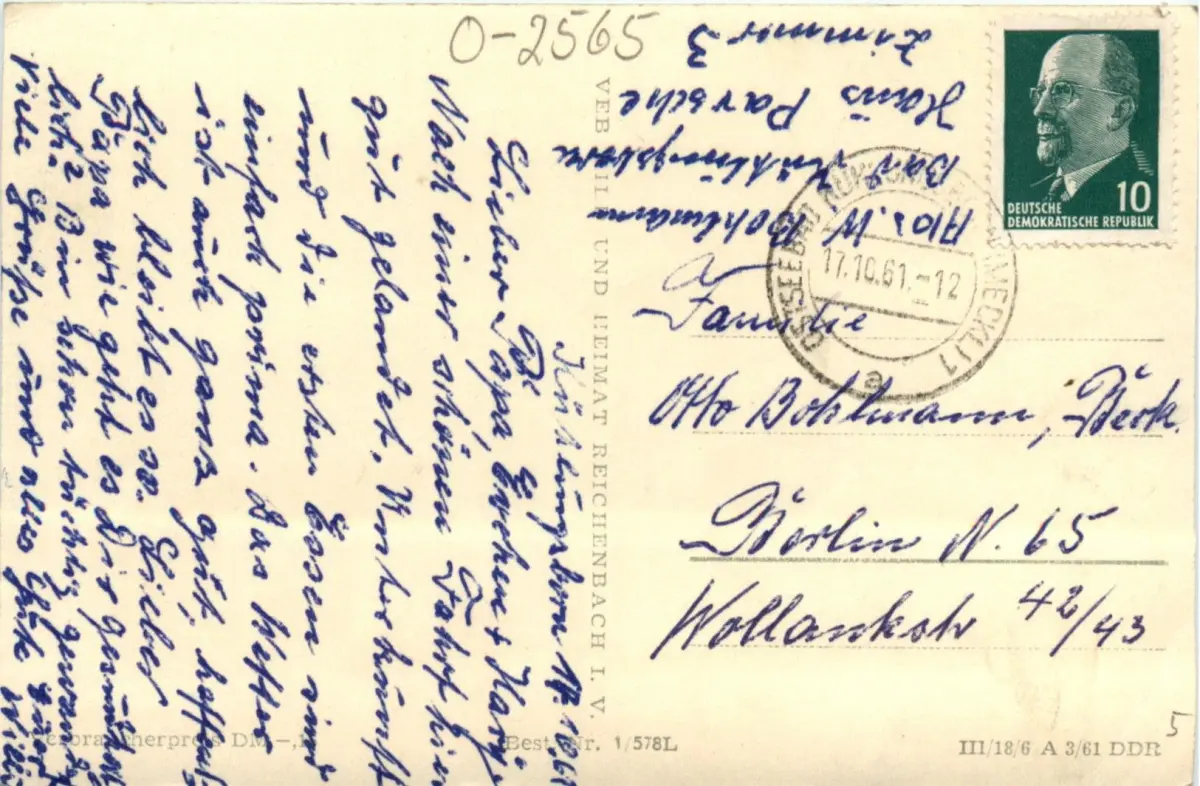 O-2565
Abs. W. Bohlmann
Bad Kühlungsborn
Haus Parsche
Zimmer 3
DEUTSCHE
DEMOKRATISCHE REPUBLIK
10
OSTSEEBAD KÜHLUNGSBORN (MECKL) 1
17.10.61.-12
a
Familie
Otto Bohlmann, Bürk.
Berlin N. 65
Wollankstr 42/43
Kühlungsborn 17. 1061
Lieber Papa, Evchen + Harz.
Nach einer schönen Fahrt hier
gut gelandet. Unterkunft
und die ersten Essen sind
einfach prima. Das Wetter
ist auch ganz gut, hoffent-
lich bleibt es so. Lieber
Papa wie geht es Dir gesundheit-
lich? Bin schon tüchtig
viele Grüße und alles Gute
VEB BILD UND HEIMAT REICHENBACH I. V.
Verbraucherpreis DM -,
Best.-Nr. 1/578L
III/18/6 A 3/61 DDR
5